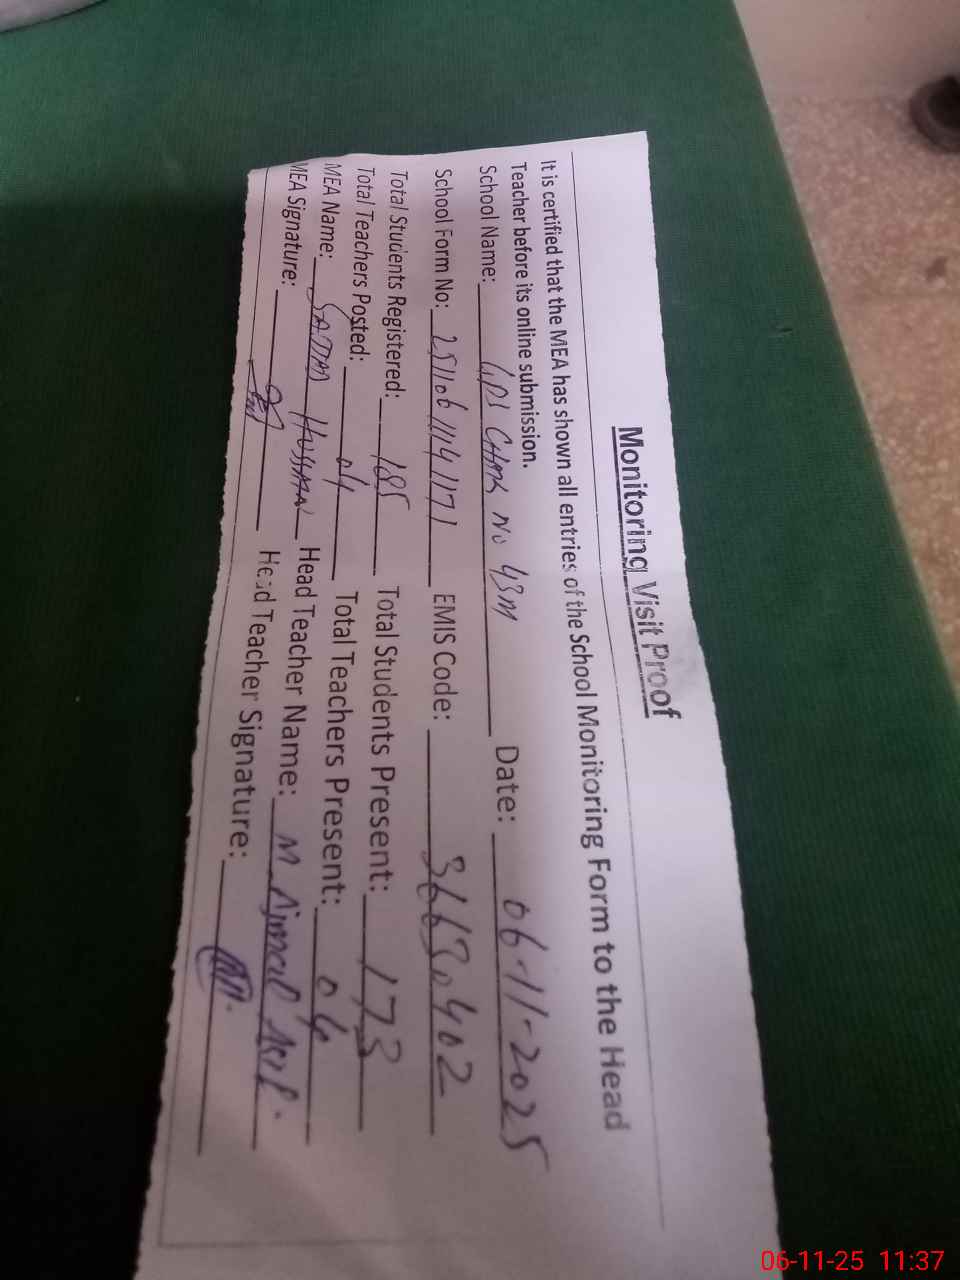 Monitoring Visit Proof
It is certified that the MEA has shown all entries of the School Monitoring Form to the Head
Teacher before its online submission.
School Name: GPS CHAK No 43M Date: 06-11-2025
School Form No: EMIS Code: 36630402
Total Students Registered: 185 Total Students Present: 173
Total Teachers Posted: 04 Total Teachers Present: 04
MEA Name: HUSSAIN Head Teacher Name: M Ajmal
MEA Signature: Head Teacher Signature:
06-11-25 11:37